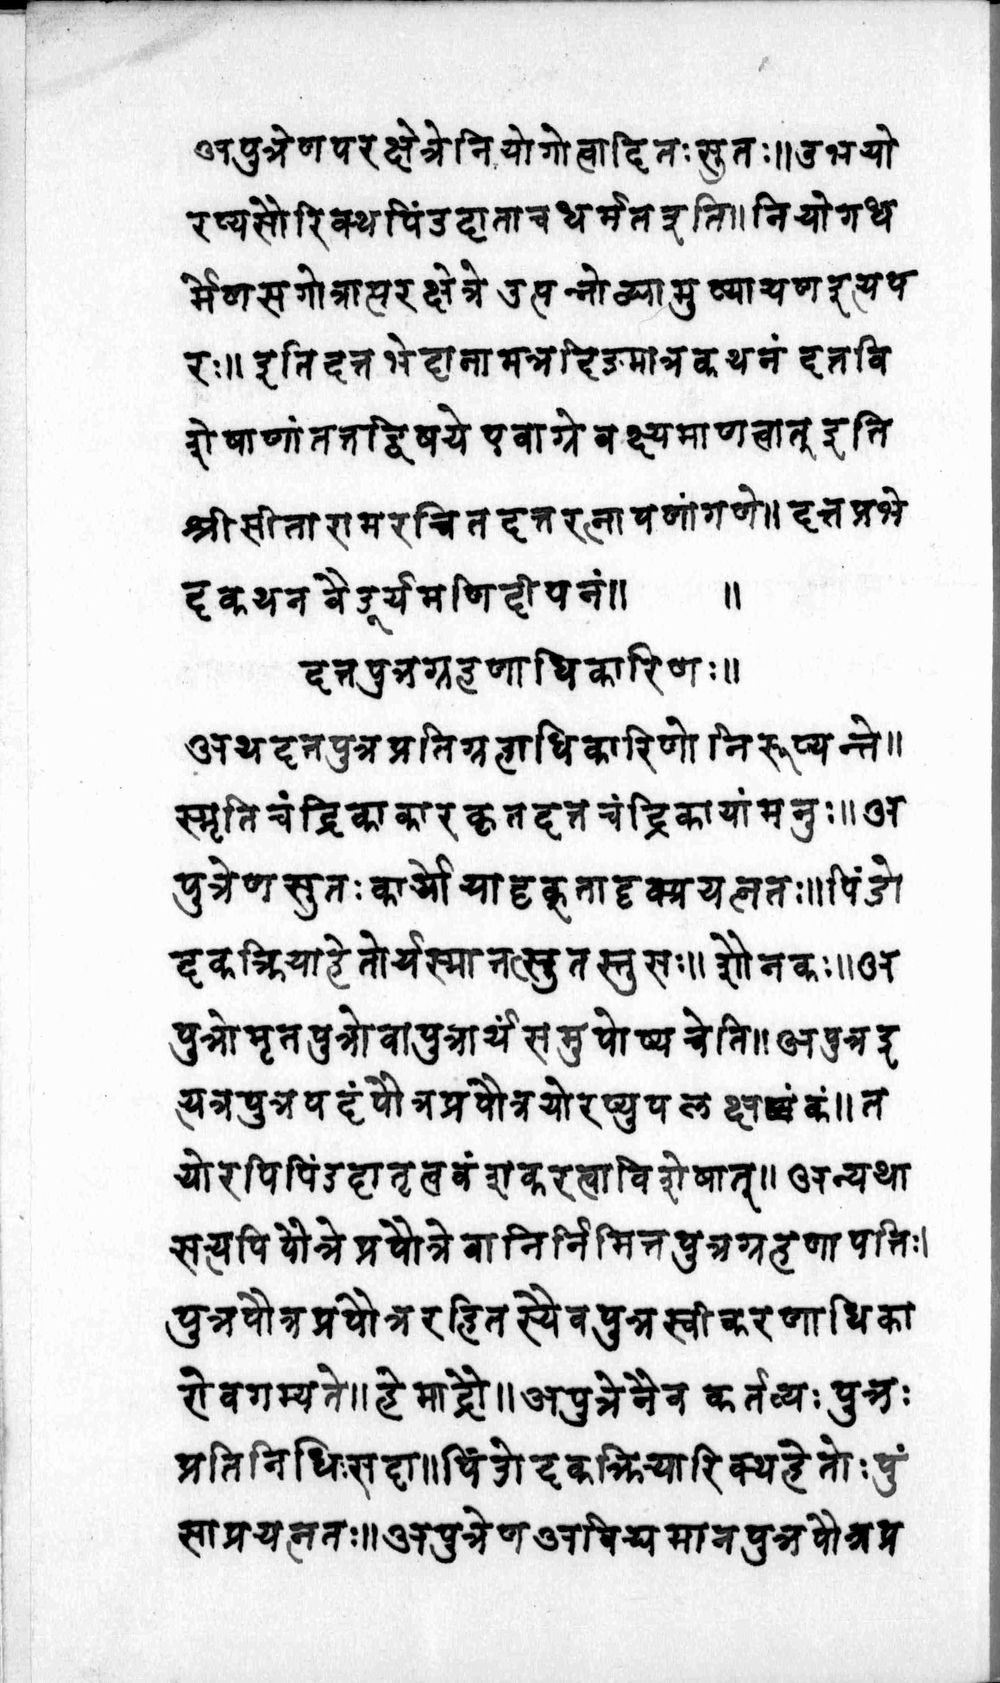 अपुत्रेणपरक्षेत्रेनियोगोत्पादितःसुतः॥उभयो
रप्यसौरिक्थपिंडदाताचधर्मतइति॥नियोगध
र्मेणसगोत्रात्परक्षेत्रेउत्पन्नोव्द्यामुष्यायणइत्यप
रः॥इतिदत्तभेदानामत्रदिङमात्रकथनंदत्तवि
शेषाणांतत्तद्विषयेएवाग्रेवक्ष्यमाणत्वात्इति
श्रीसीतारामरचितदत्तरत्नायणांगणे॥दत्तप्रभे
दकथनवैडूर्यमणिदीपनं॥ ॥
दत्तपुत्रग्रहणाधिकारिणः॥
अथदत्तपुत्रप्रतिग्रहाधिकारिणोनिरूप्यन्ते॥
स्मृतिचंद्रिकाकारकृतदत्तचंद्रिकायांमनुः॥अ
पुत्रेणसुतःकार्योयादृक्तादृक्प्रयत्नतः॥पिंडो
दकक्रियाहेतोर्यस्मात्तत्सुतस्तुसः॥शौनकः॥अ
पुत्रोमृतपुत्रोवापुत्रार्थंसमुपोष्यचेति॥अपुत्रइ
त्यत्रपुत्रपदंपौत्रप्रपौत्रयोरप्युपलक्षकं॥त
योरपिपिंडदातृत्ववंशकरत्वाविशेषात्॥अन्यथा
सत्यपिपौत्रेप्रपौत्रेवानिर्निमित्तपुत्रग्रहणापत्तिः।
पुत्रपौत्रप्रपौत्ररहितस्यैवपुत्रस्वीकरणाधिका
रोवगम्यते॥हेमाद्रौ॥अपुत्रेनैवकर्तव्यःपुत्रः
प्रतिनिधिःसदा॥पिंडोदकक्रियारिक्थहेतोःपुं
साप्रयत्नतः॥अपुत्रेणअविद्यमानपुत्रपौत्रप्र